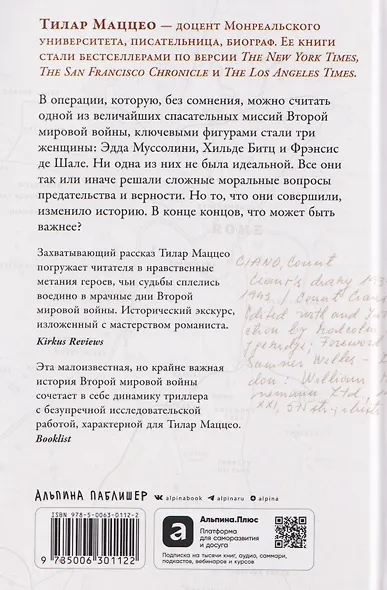 ТИЛАР МАЦЦЕО — ДОЦЕНТ МОНРЕАЛЬСКОГО
УНИВЕРСИТЕТА, ПИСАТЕЛЬНИЦА, БИОГРАФ. ЕЕ КНИГИ
СТАЛИ БЕСТСЕЛЛЕРАМИ ПО ВЕРСИИ THE NEW YORK TIMES,
THE SAN FRANCISCO CHRONICLE И THE LOS ANGELES TIMES.
В операции, которую, без сомнения, можно считать
одной из величайших спасательных миссий Второй
мировой войны, ключевыми фигурами стали три
женщины: Эдда Муссолини, Хильде Битц и Фрэнсис
де Шале. Ни одна из них не была идеальной. Все они
так или иначе решали сложные моральные вопросы
предательства и верности. Но то, что они совершили,
изменило историю. В конце концов, что может быть
важнее?
Захватывающий рассказ Тилар Маццео
погружает читателя в нравственные
метания героев, чьи судьбы сплелись
воедино в мрачные дни Второй
мировой войны. Исторический экскурс,
изложенный с мастерством романиста.
Kirkus Reviews
Эта малоизвестная, но крайне важная
история Второй мировой войны
сочетает в себе динамику триллера
с безупречной исследовательской
работой, характерной для Тилар Маццео.
Booklist
CIANO, Count
Ciano's diary 193
1943. / Count Ciano
Edited with and
ction by Malcolm
Foreword
Sumner Welles
don: William
Ltd.
XXI, 575
АЛЬПИНА ПАБЛИШЕР
alpinabook
alpinaru
alpina
ISBN 978-5-0063-0112-2
9 785006 301122
Альпина.Плюс
Платформа
для саморазвития
и досуга
Подписка на тысячи книг, аудио, саммари,
подкастов, вебинаров и курсов